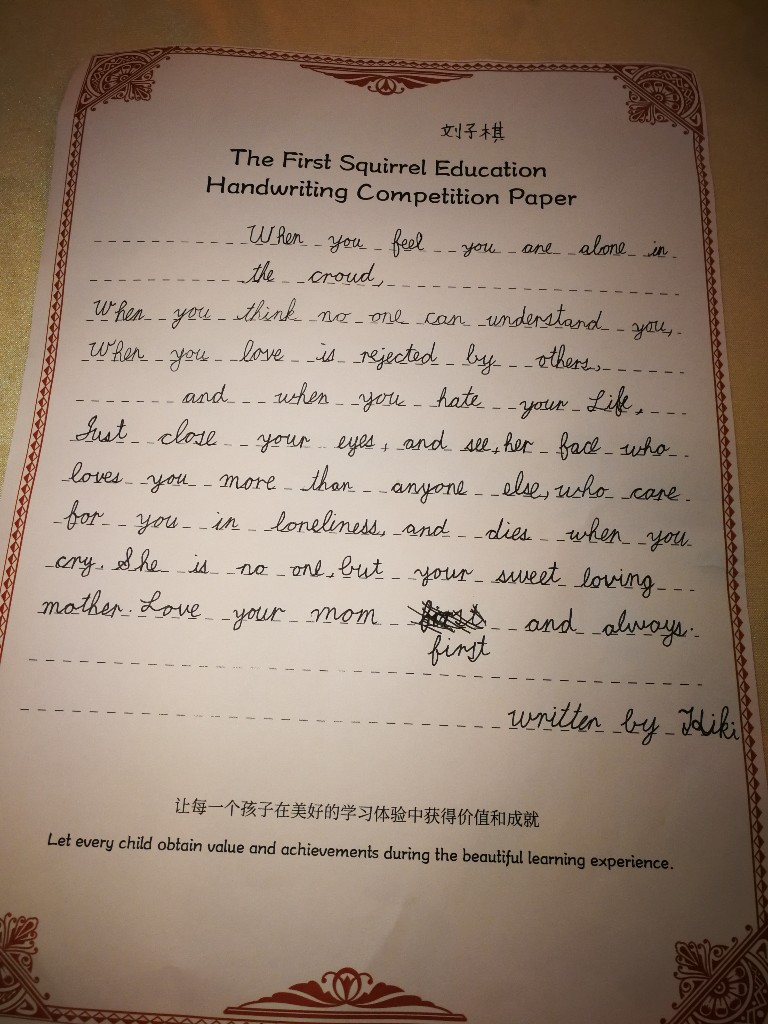 刘子棋
The First Squirrel Education
Handwriting Competition Paper
When you feel you are alone in
the croud,
When you think no one can understand you,
When you love is rejected by others,
and when you hate your Life,
Just close your eyes, and see, her face who
loves you more than anyone else, who care
for you in loneliness, and dies when you
cry. She is no one, but your sweet loving
mother. Love your mom and always.
first
written by
让每一个孩子在美好的学习体验中获得价值和成就
Let every child obtain value and achievements during the beautiful learning experience.